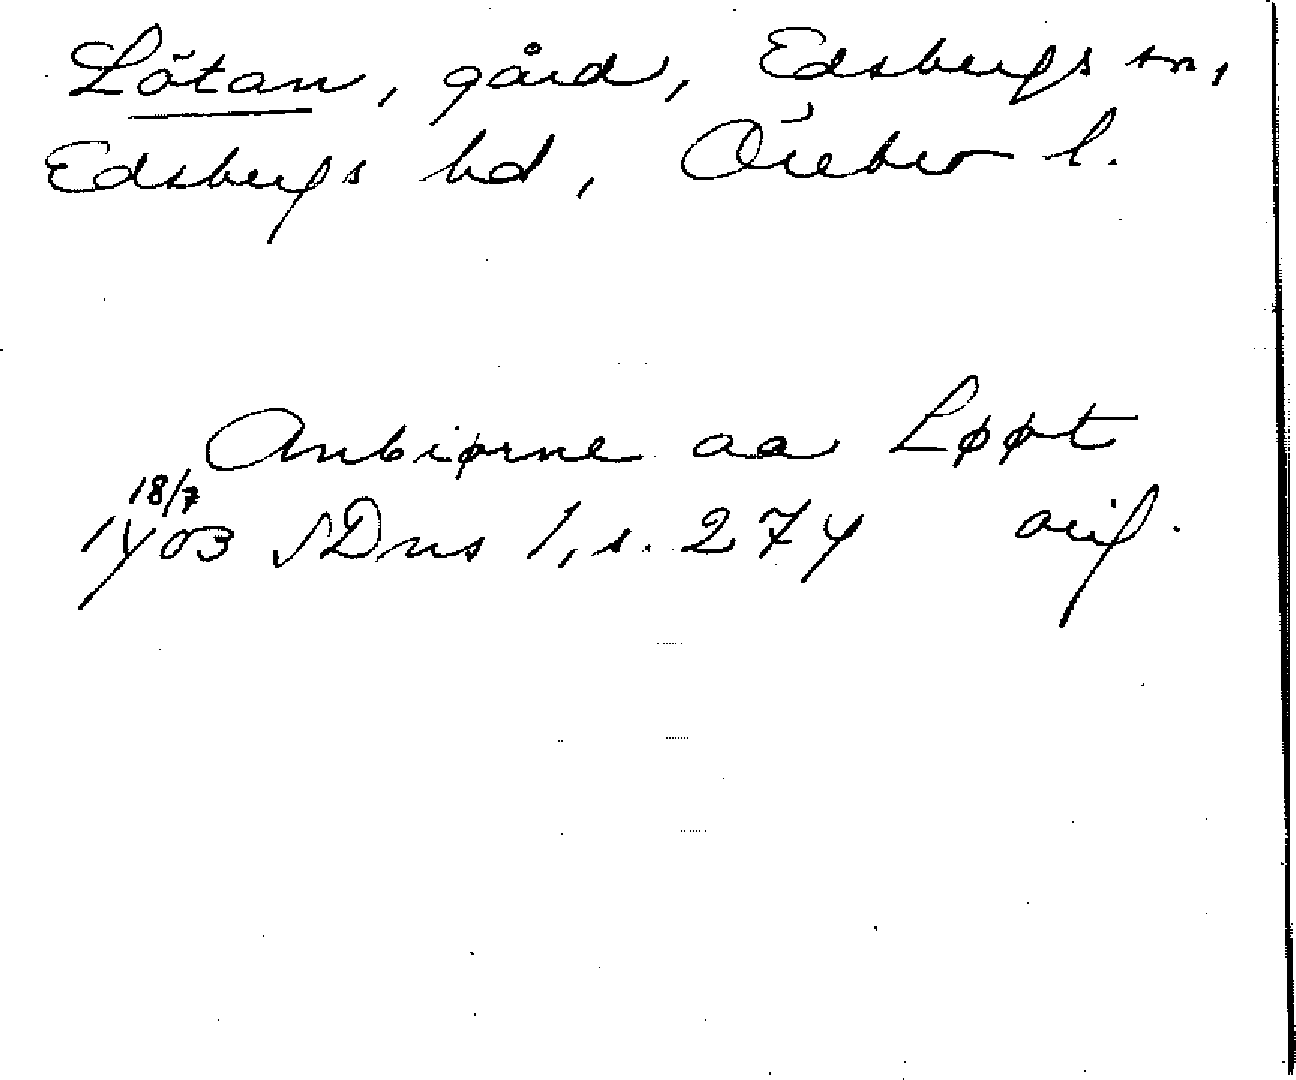 Lötan, gård, Edsbergs sn,
Edsbergs hd, Örebro l.
Anbiørne aa Løøt
18/7
1403 SDns 1, s. 274 orig.